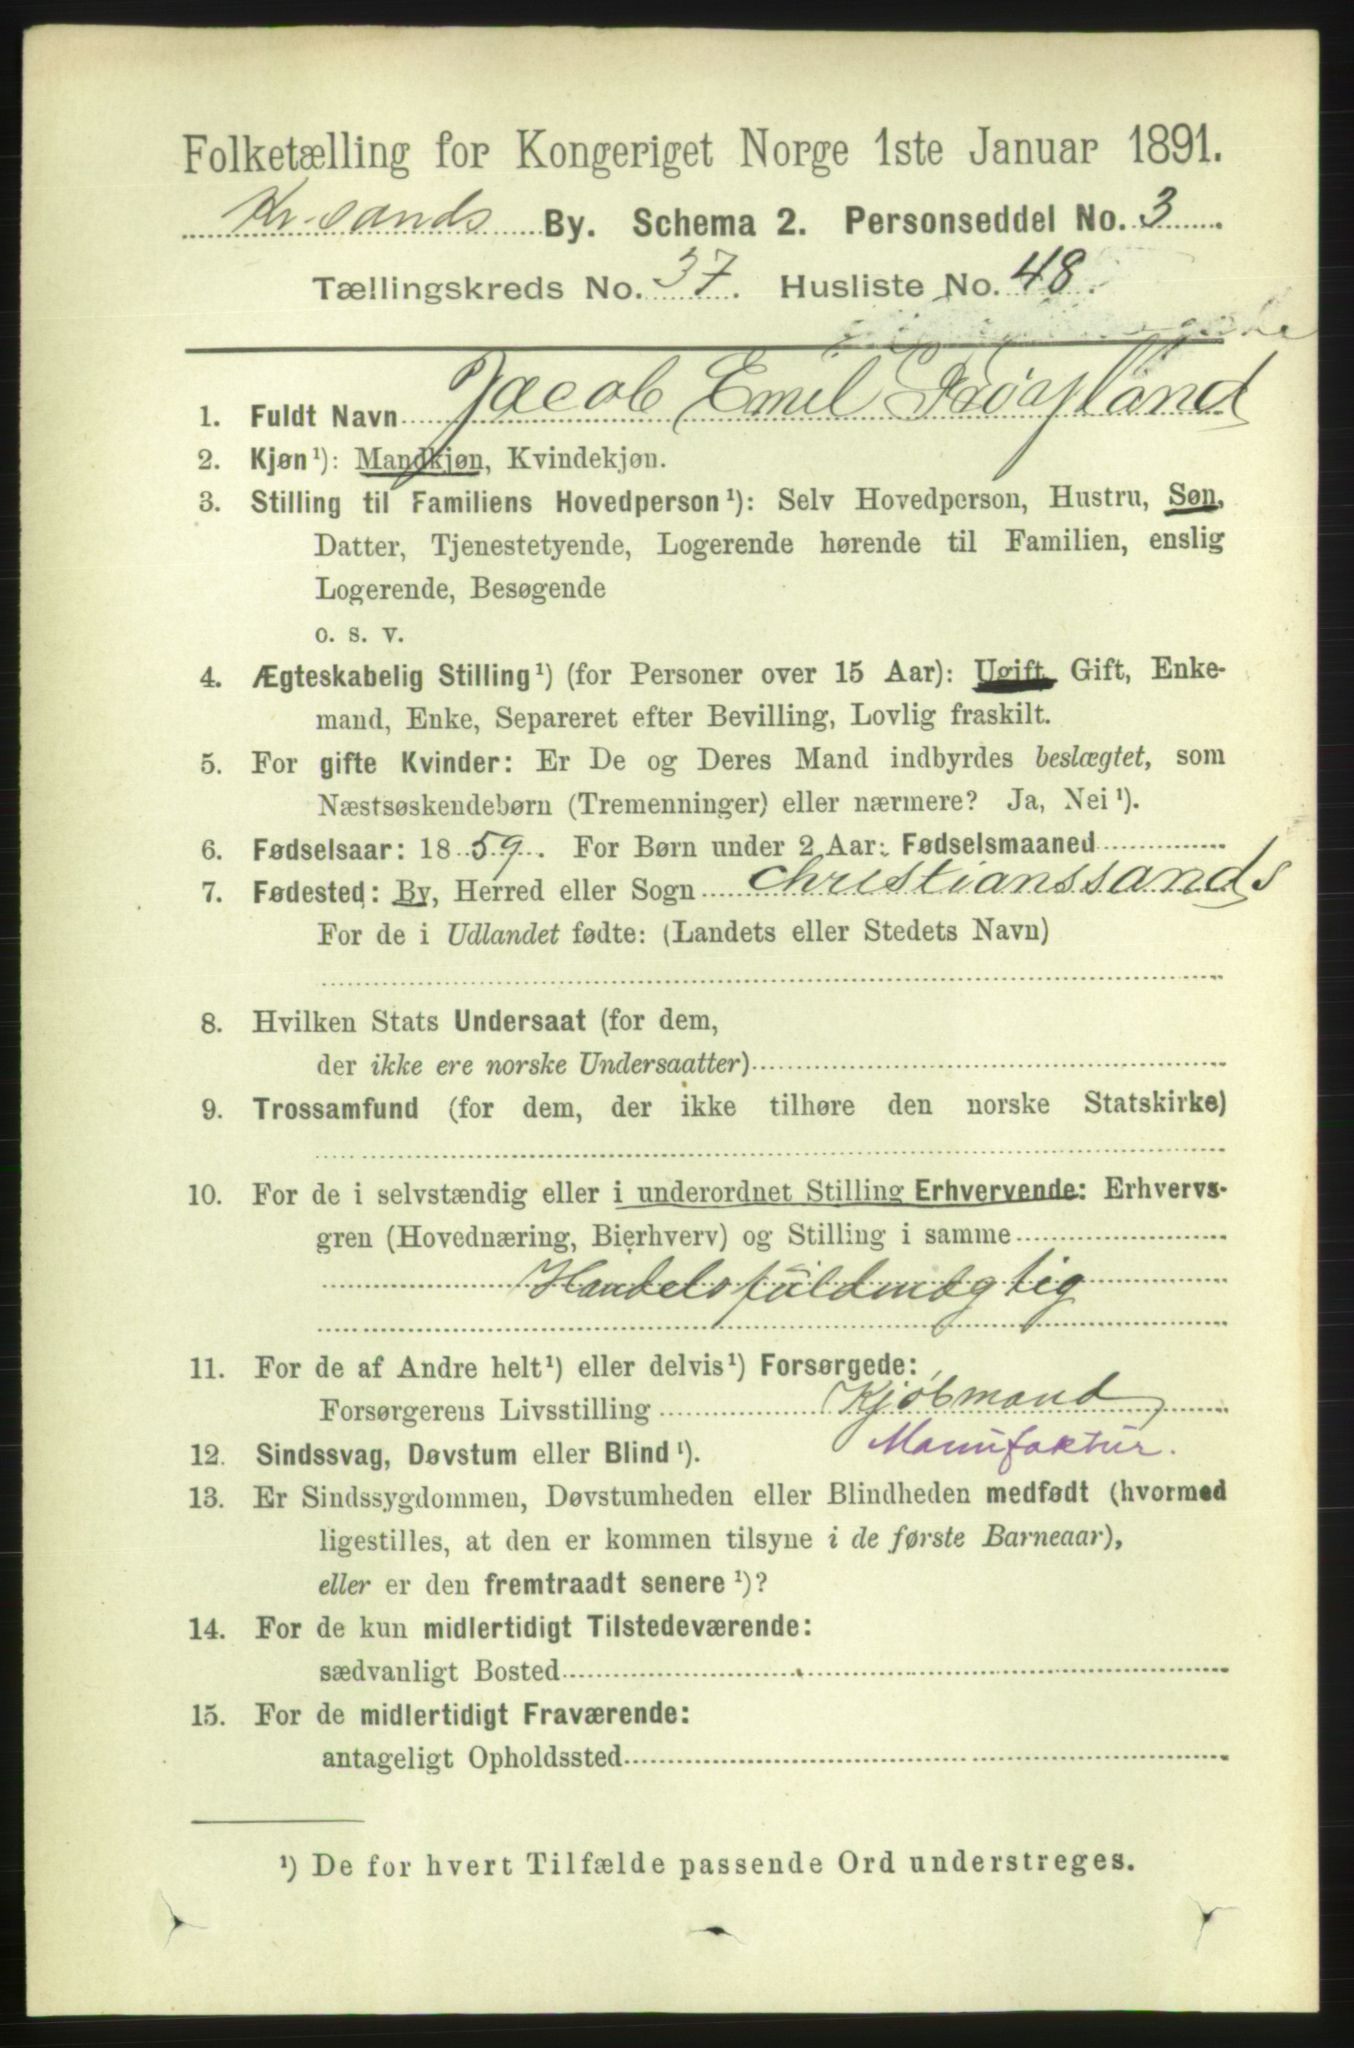 Folketælling for Kongeriget Norge 1ste Januar 1891.
Kr.sands By. Schema 2. Personseddel No. 3
Tællingskreds No. 37. Husliste No. 48.
1. Fuldt Navn Jacob Emil Frøyland
2. Kjøn¹): Mandkjøn, Kvindekjøn.
3. Stilling til Familiens Hovedperson¹): Selv Hovedperson, Hustru, Søn,
Datter, Tjenestetyende, Logerende hørende til Familien, enslig
Logerende, Besøgende
o. s. v.
4. Ægteskabelig Stilling¹) (for Personer over 15 Aar): Ugift, Gift, Enke-
mand, Enke, Separeret efter Bevilling, Lovlig fraskilt.
5. For gifte Kvinder: Er De og Deres Mand indbyrdes beslægtet, som
Næstsøskendebørn (Tremenninger) eller nærmere? Ja, Nei¹).
6. Fødselsaar: 1859. For Børn under 2 Aar: Fødselsmaaned
7. Fødested: By, Herred eller Sogn Christianssands
For de i Udlandet fødte: (Landets eller Stedets Navn)
8. Hvilken Stats Undersaat (for dem,
der ikke ere norske Undersaatter)
9. Trossamfund (for dem, der ikke tilhøre den norske Statskirke)
10. For de i selvstændig eller i underordnet Stilling Erhvervende: Erhvervs-
gren (Hovednæring, Bierhverv) og Stilling i samme
Handelsfuldmægtig
11. For de af Andre helt¹) eller delvis¹) Forsørgede:
Forsørgerens Livsstilling Kjøbmand
Manufaktur.
12. Sindssvag, Døvstum eller Blind¹).
13. Er Sindssygdommen, Døvstumheden eller Blindheden medfødt (hvormed
ligestilles, at den er kommen tilsyne i de første Barneaar),
eller er den fremtraadt senere¹)?
14. For de kun midlertidigt Tilstedeværende:
sædvanligt Bosted
15. For de midlertidigt Fraværende:
antageligt Opholdssted
¹) De for hvert Tilfælde passende Ord understreges.